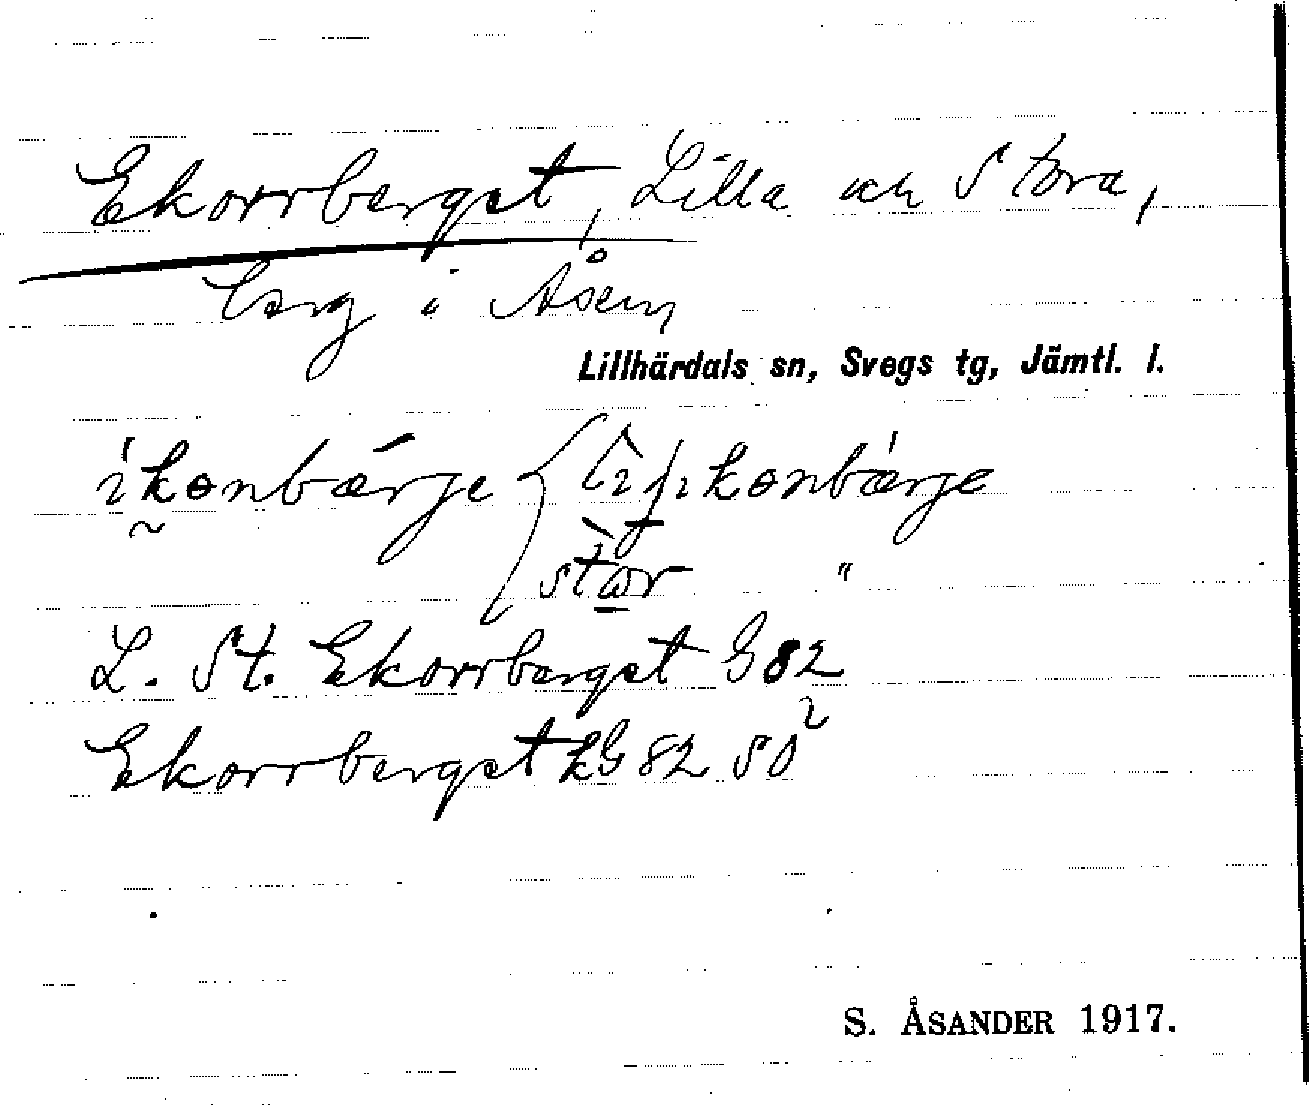 Ekorrberget, Lilla och Stora,
berg i Åsen
Lillhärdals sn, Svegs tg, Jämtl. l.
stɷr "
L. St. Ekorrberget G82
Ekorrberget kG 82 SO²
S. ÅSANDER 1917.